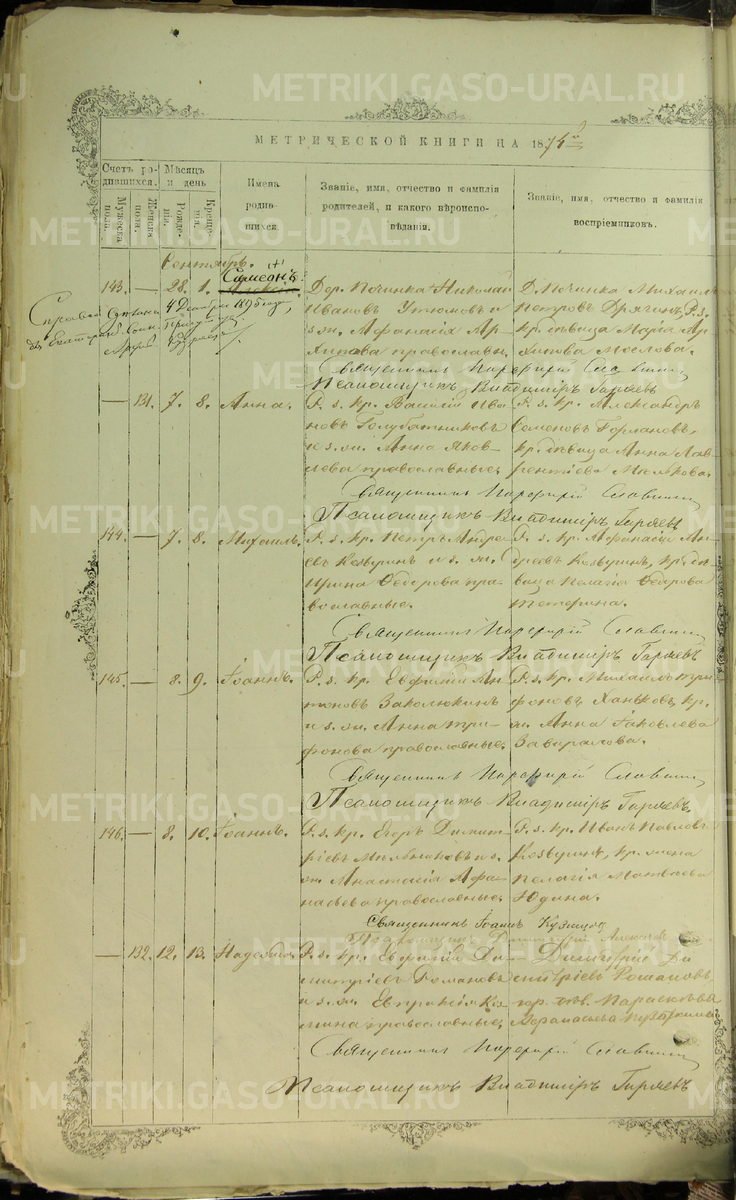 METRIKI.GASO-URAL.RU
МЕТРИЧЕСКОЙ КНИГИ НА 1874й
Счетъ родившихся.
Мужеска пола.
Женска пола.
Мѣсяцъ и день
Рожденія.
Крещенія.
Имена родившихся.
Званіе, имя, отчество и фамилія родителей, и какого вѣроисповѣданія.
Званіе, имя, отчество и фамилія воспріемниковъ.
Сентябрь.
143. — 28. 1. Симеонъ
Дер. Починка Николай
Ивановъ Утюмовъ и
з. ж. Афанасія Ар
хипова православн.
Д. Починка Михаилъ
Петровъ Дрягинъ, Р. з.
кр. дѣвица Марія Ар
хипова Маслова.
4 Декабря 1895 года,
Священникъ Порфирій Славнинъ
Псаломщикъ Владиміръ Гаряевъ
— 131. 7. 8. Анна.
Р. з. кр. Василій Ива
новъ Голубятниковъ
и з. ж. Анна Яков
лева православные.
Р. з. кр. Александръ
Семеновъ
кр. дѣвица Анна Лав
рентіева Мылькова.
Священникъ Порфирій Славнинъ
Псаломщикъ Владиміръ Гаряевъ
144. — 7. 8. Михаилъ.
Р. з. кр. Петръ Андре
евъ Козвуринъ и з. ж.
Ирина Ѳедорова пра
вославные.
Р. з. кр. Афанасій Ан
дреевъ Козвуринъ, кр. дѣ
вица Пелагія Ѳедорова
Тетерина.
Священникъ Порфирій Славнинъ
Псаломщикъ Владиміръ Гаряевъ
145. — 8. 9. Іоаннъ.
Р. з. кр. Евфимій Ан
тоновъ Заколюкинъ
и з. ж. Анна Три
фонова православные.
Р. з. кр. Михаилъ Три
фоновъ Ханжовъ, кр.
ж. Анна Яковлева
Завралова.
Священникъ Порфирій Славнинъ
Псаломщикъ Владиміръ Гаряевъ
146. — 8. 10. Іоаннъ.
Р. з. кр. Егоръ Димит
ріевъ Мыльниковъ и з.
ж. Анастасія Афа
насьева православные.
Р. з. кр. Иванъ Павловъ
Козвуринъ, кр. жена
Пелагія Матвѣева
Юдина.
Священникъ Іоаннъ Кузнецовъ
Псаломщикъ Димитрій
— 132. 12. 13. Надежда.
Р. з. кр. Евфимій Ди
митріевъ Романовъ
и з. ж. Евпраксія Ко
мина православные.
Димитрій Ди
митріевъ Романовъ,
кр. дѣв. Параскева
Афанасьева
Священникъ Порфирій Славнинъ
Псаломщикъ Владиміръ Гаряевъ